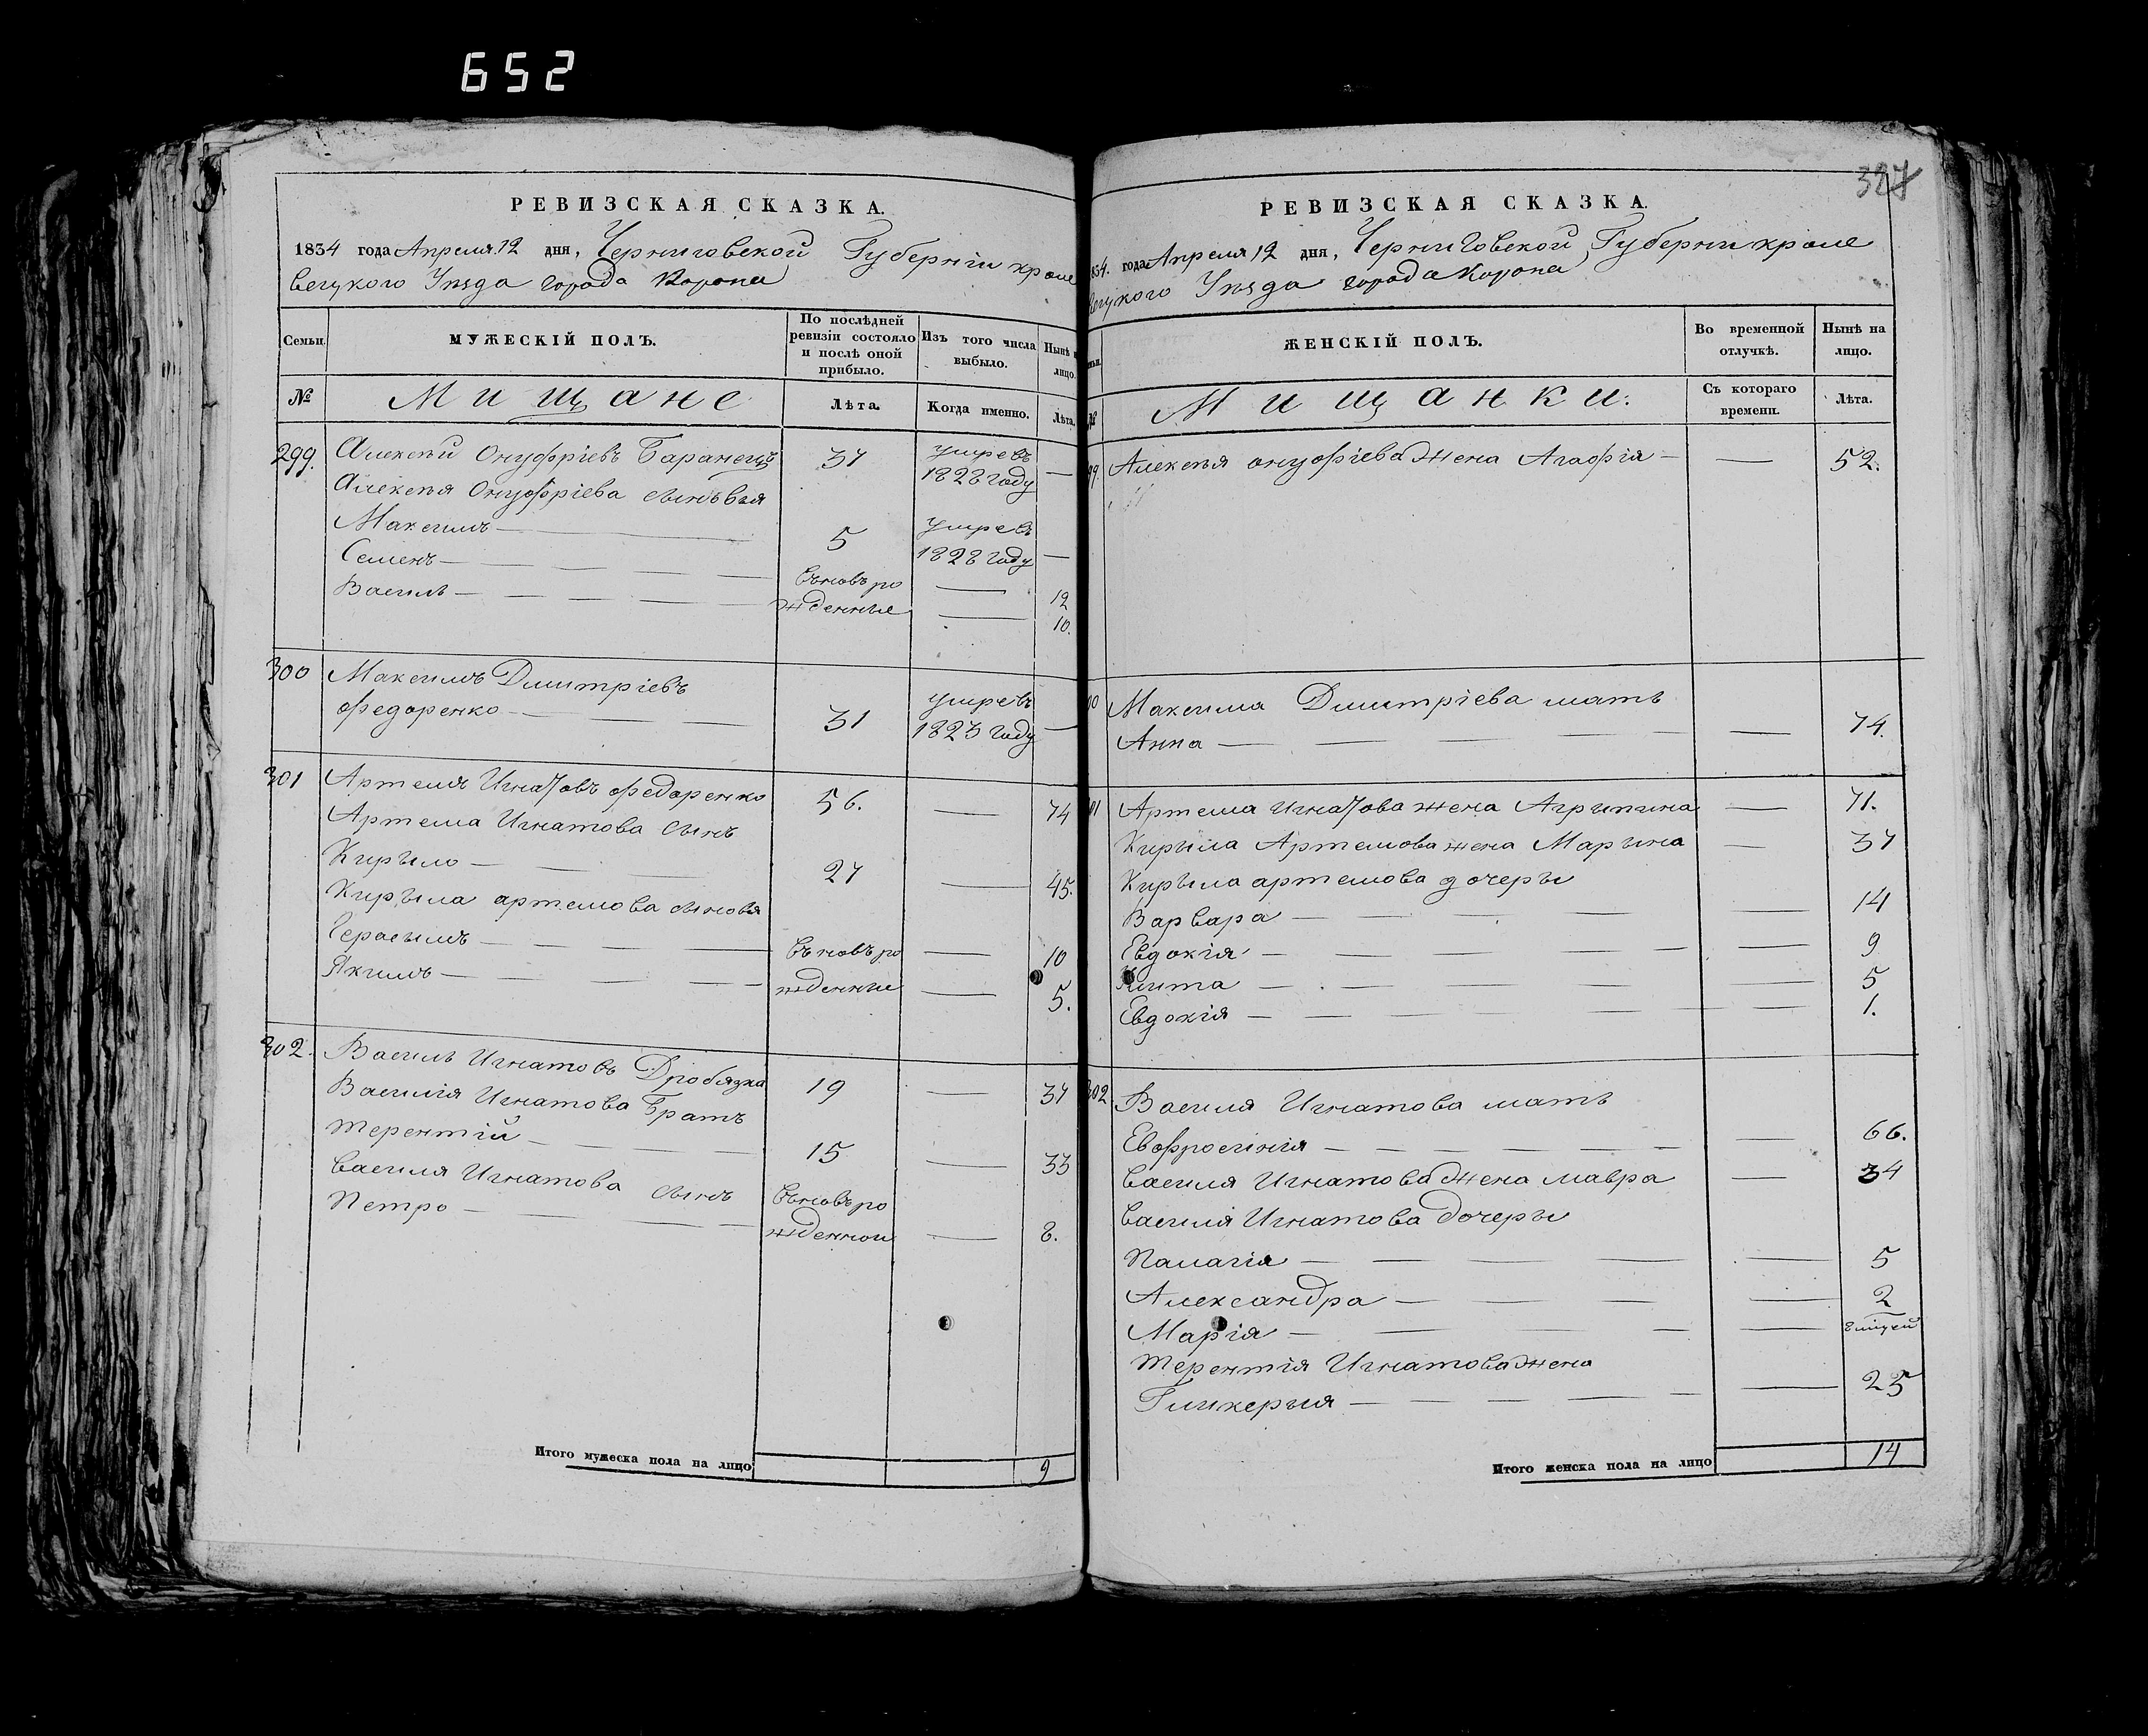 652
РЕВИЗСКАЯ СКАЗКА.
1834 года Апреля 12 дня, Черниговской Губерніи кроле
вецкого Уѣзда города Коропа
Семьи.
МУЖЕСКІЙ ПОЛЪ.
По послѣдней ревизіи состояло и послѣ оной прибыло.
Изъ того числа выбыло.
Нынѣ н лицо.
№
Мищане
Лѣта.
Когда именно.
Лѣта.
299. Алексѣй Онуфріевъ Баранецъ 37 умре въ 1828 году —
Алексѣя Онуфріева сыновья
Максимъ — 5 умре въ 1828 году —
Семенъ — вновь ро — 12
Василь — жденные — 10.
300 Максимъ Дмитріевъ
Федоренко — 31 умре въ 1823 году —
301 Артемъ Игнатовъ Федоренко 56. — 74
Артема Игнатова сынъ
Кирыло — 27 — 45.
Кирыла Артемова сыновя
Герасымъ — вновь ро — 10
Якимъ — жденные — 5.
302. Василь Игнатовъ Дробязка 19 — 37
Василія Игнатова Братъ
Терентій — 15 — 33
Василя Игнатова сынъ вновь ро
Петро — жденной — 8.
Итого мужеска пола на лицо 9
327
РЕВИЗСКАЯ СКАЗКА.
834. года Апреля 12 дня, Черниговской Губерніи кроле
вецкого Уѣзда города Коропа
ЖЕНСКІЙ ПОЛЪ.
Во временной отлучкѣ.
Нынѣ на лицо.
№
Мищанки.
Съ котораго времени.
Лѣта.
99. Алексѣя Онуфріева жена Агафія — — 52.
00 Максима Дмитріева мать
Анна — — 74.
01 Артема Игнатова жена Агрипина — 71.
Кирыла Артемова жена Марына — 37
Кирыла Артемова дочеры
Варвара — — 14
Евдокія — — 9
— — 5
Евдокія — — 1.
302 Василя Игнатова мать
Евфросинія — — 66.
Василя Игнатова жена Мавра — 34
Василія Игнатова дочеры
Палагія — — 5
Александра — — 2
Марія — —
Терентія Игнатова жена
Гликерыя — — 25
Итого женска пола на лицо 14